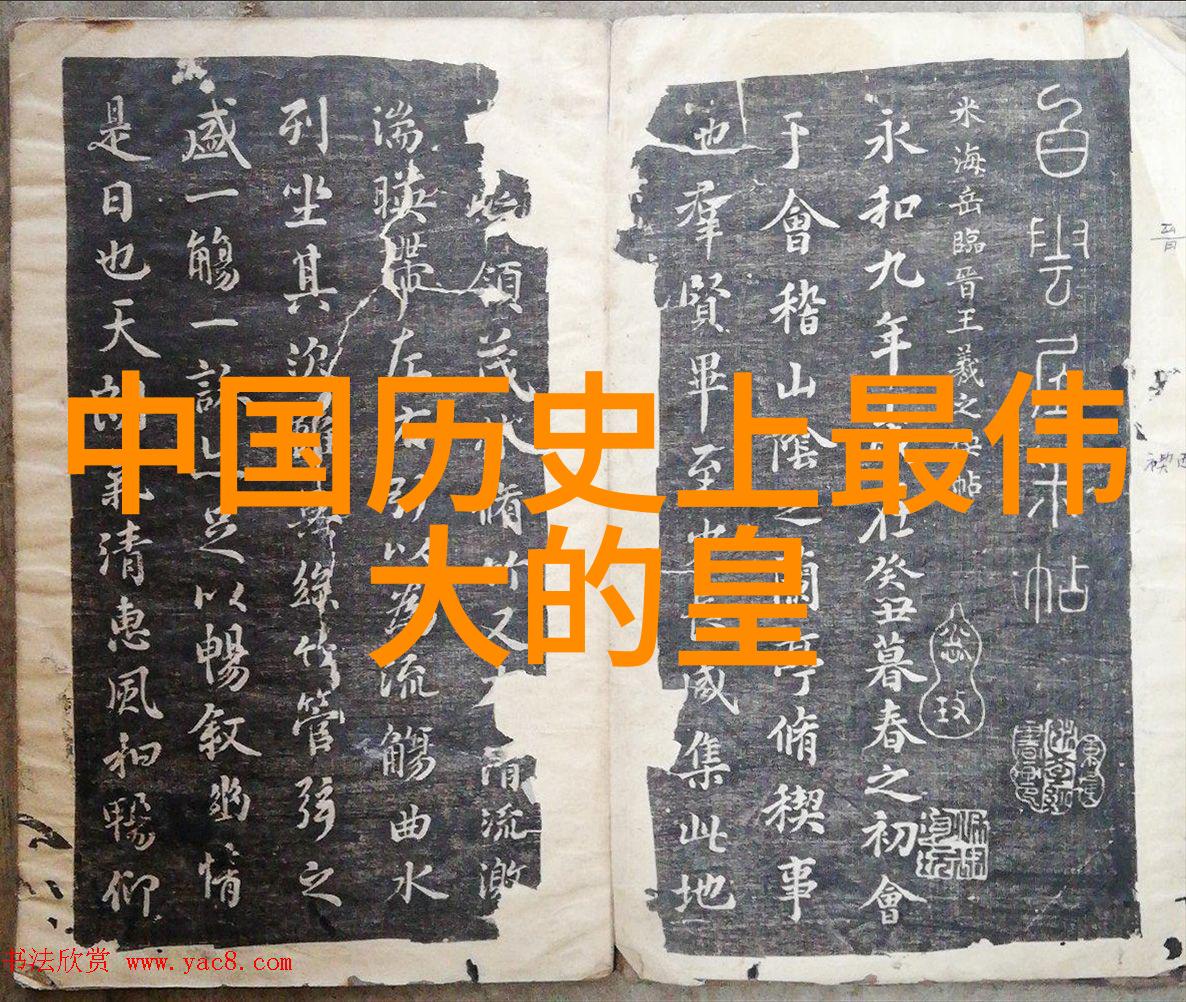 中国历史上最伟
大的皇
白雲居米帖
米海岳臨晉王羲之禊帖
永和九年
癸丑暮春之初會
于會稽山陰之蘭亭脩稧事
也羣賢畢至
咸集此地
領茂
脩竹又
清流激
湍暎帶左右引以為流觴曲水
列坐其次
絲竹管弦之
盛一觴一詠
足以暢叙幽情
是日也天朗氣清惠風和暢仰
书法欣赏 www.yac8.com